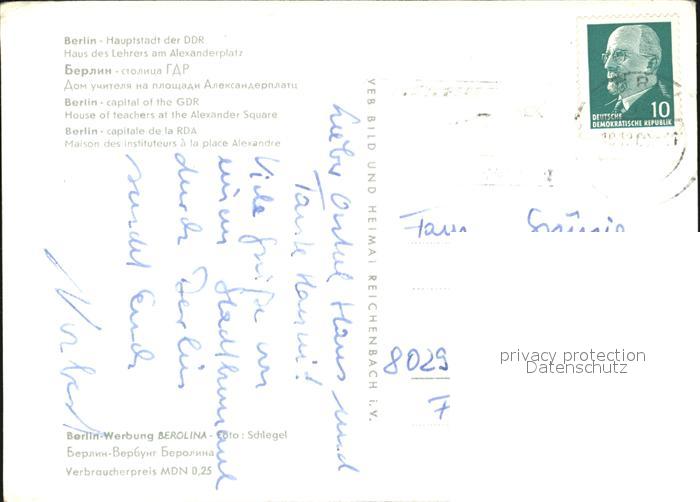 Berlin - Hauptstadt der DDR
Haus des Lehrers am Alexanderplatz
Берлин - столица ГДР
Дом учителя на площади Александерплатц
Berlin - capital of the GDR
House of teachers at the Alexander Square
Berlin - capitale de la RDA
Maison des instituteurs à la place Alexandre
VEB BILD UND HEIMAT REICHENBACH i. V.
Lieber Onkel Hans und
Tante Hanni!
Viele Grüße von
einem Stadtbummel
durch Berlin
sendet Euch
Norbert
10
DEUTSCHE
DEMOKRATISCHE REPUBLIK
Fam.
8029
privacy protection
Datenschutz
Berlin-Werbung BEROLINA - Foto: Schlegel
Берлин-Вербунг Беролина
Verbraucherpreis MDN 0,25